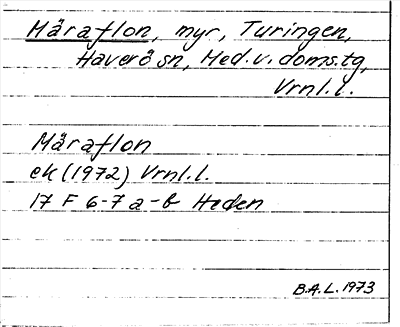 Märaflon, myr, Turingen,
Haverö sn, Med.v.doms.tg,
Vrnl.l.
Märaflon
ek (1972) Vrnl.l.
17 F 6-7 a-b Heden
B.A.L. 1973